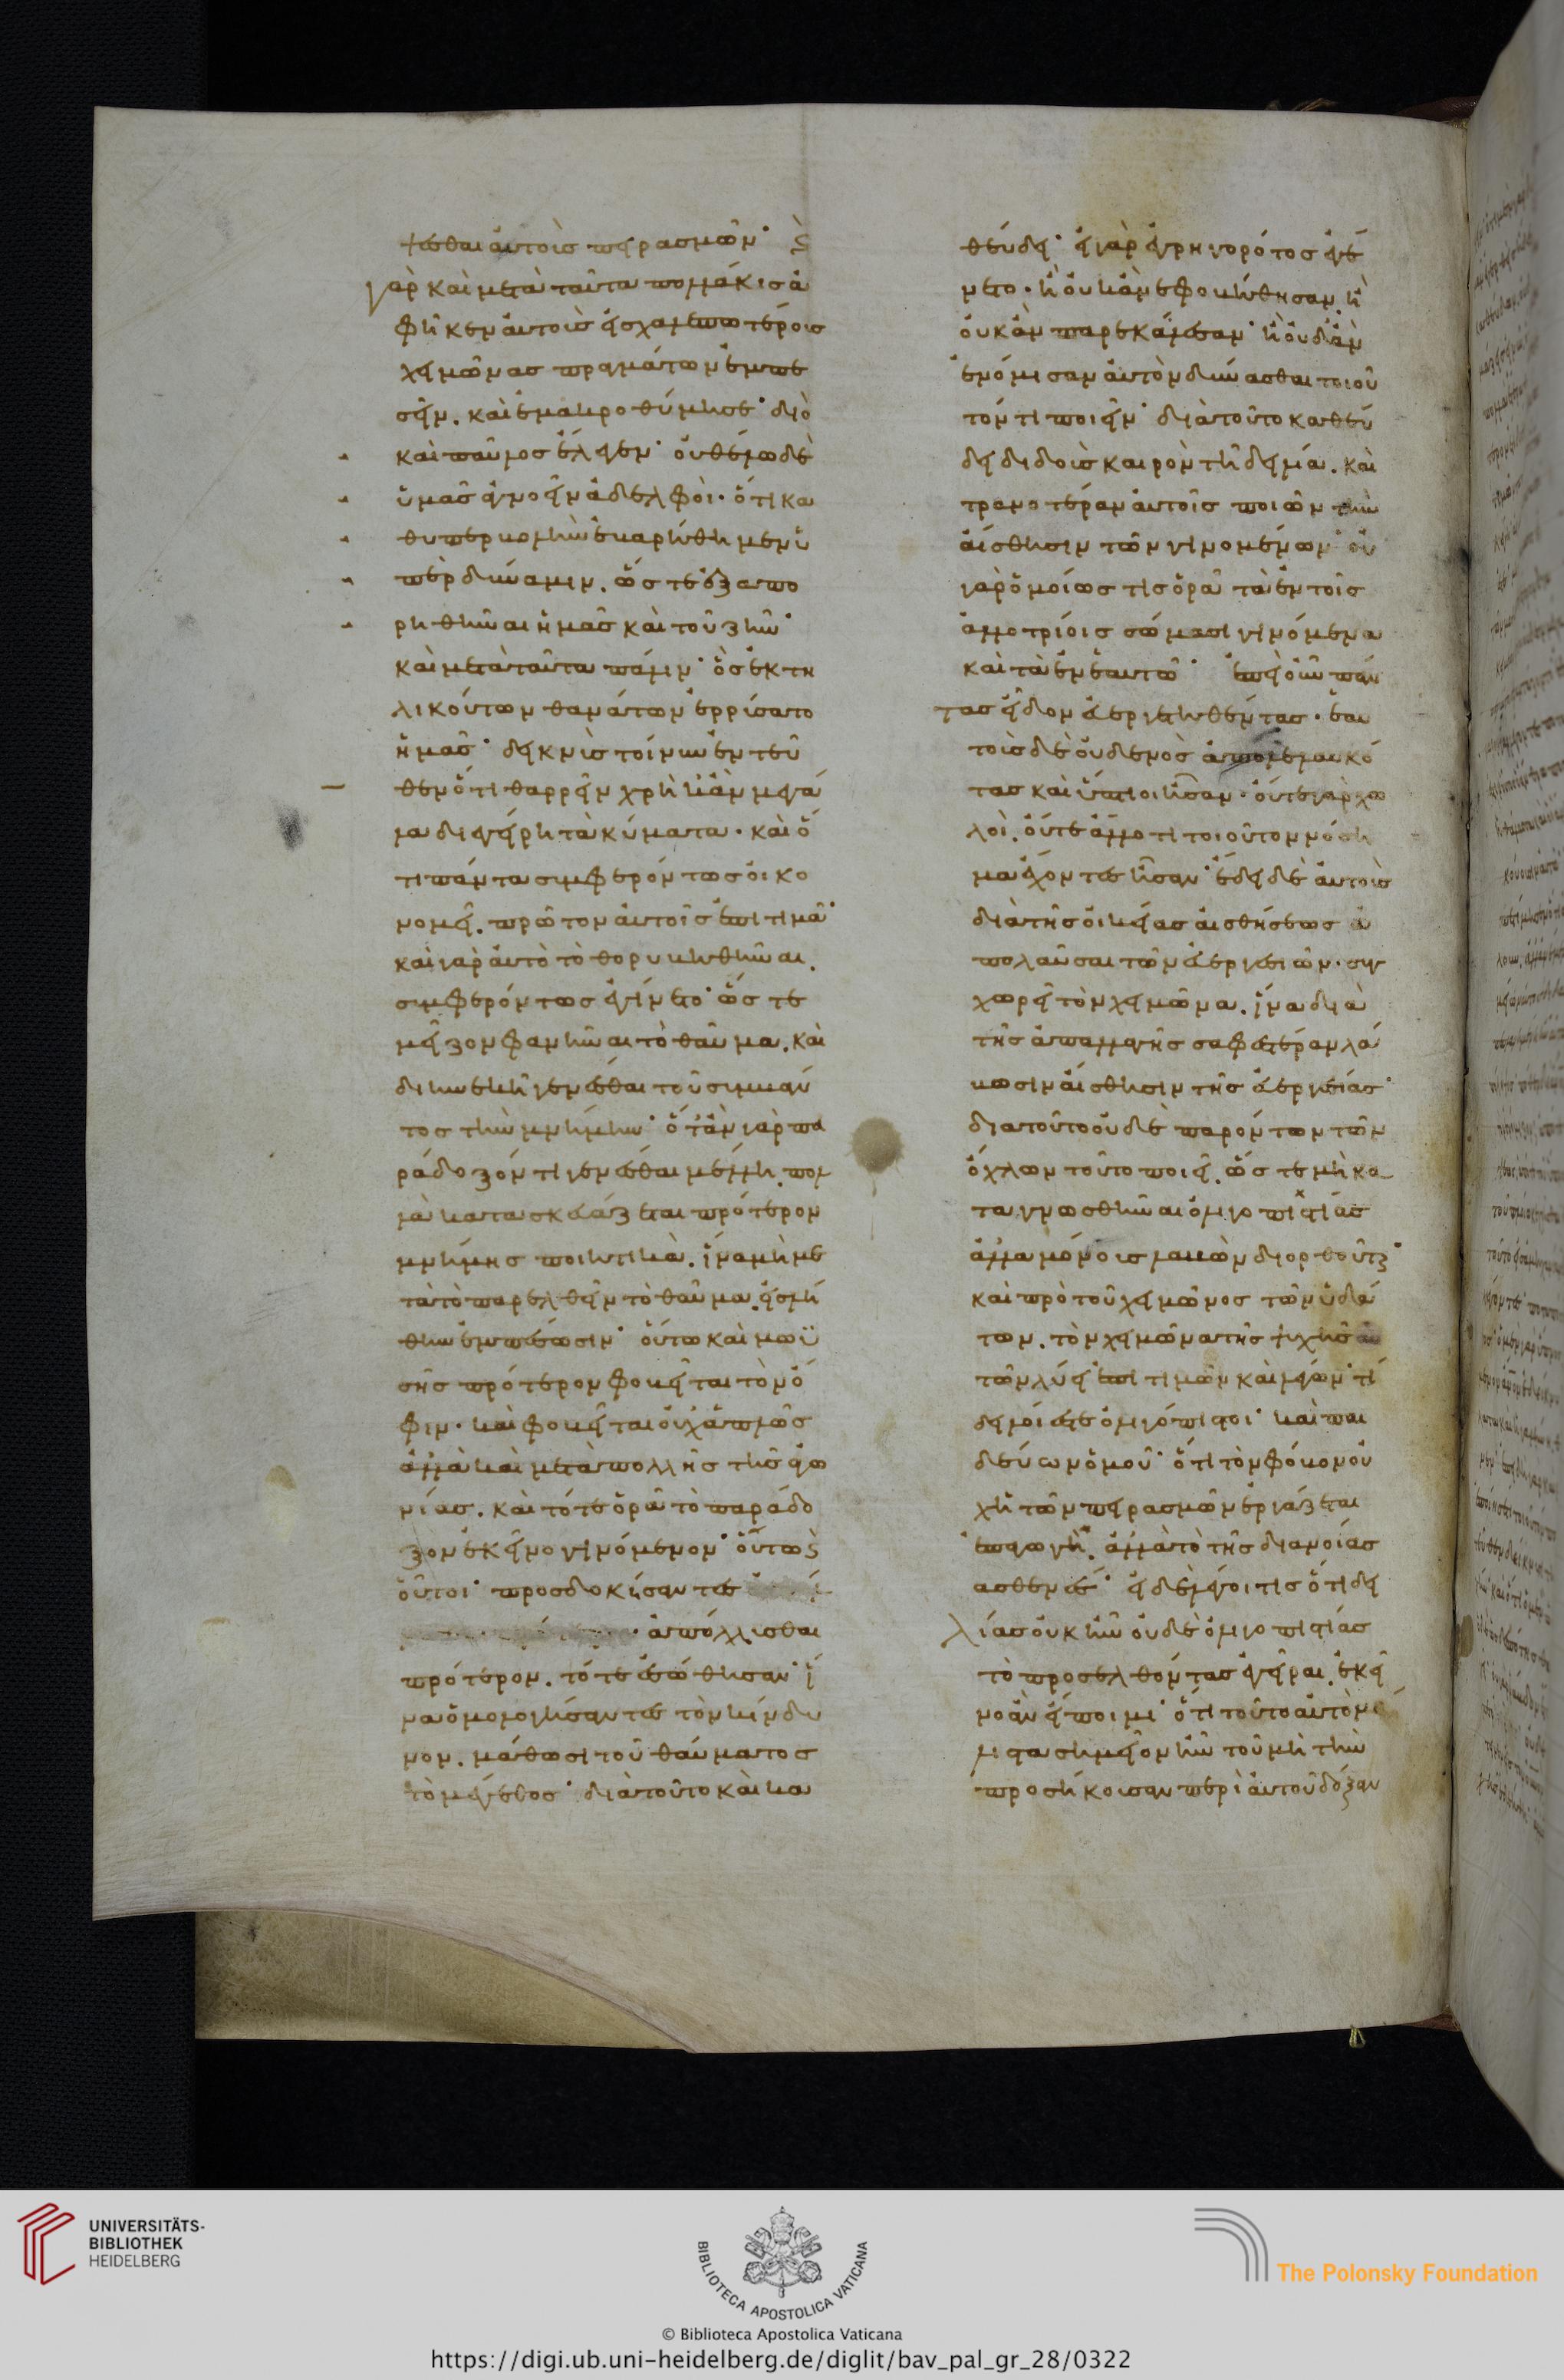 γεσθαι αὐτοῖς πειρασμῶν· καὶ
γὰρ καὶ μετὰ ταῦτα πολλάκις ἀ
φῆκεν αὐτοὺς εἰς χαλεπωτέρους
χειμῶνας πραγμάτων ἐμπε
σεῖν. καὶ ἐμακροθύμησε· διὸ
καὶ παῦλος ἔλεγεν· οὐ θέλω δὲ
ὑμᾶς ἀγνοεῖν ἀδελφοί· ὅτι κα
θ' ὑπερβολὴν ἐβαρήθημεν ὑ
πὲρ δύναμιν. ὥστε ἐξαπο
ρηθῆναι ἡμᾶς καὶ τοῦ ζῆν·
καὶ μετὰ ταῦτα πάλιν· ὃς ἐκ τη
λικούτων θανάτων ἐρρύσατο
ἡμᾶς· δεικνὺς τοίνυν ἐντεῦ
θεν ὅτι θαρρεῖν χρὴ κἂν μεγά
λα διεγείρηται κύματα. καὶ ὅ
τι πάντα συμφερόντως οἰκο
νομεῖ. πρῶτον αὐτοῖς ἐπιτιμᾶ·
καὶ γὰρ αὐτὸ τὸ θορυβηθῆναι.
συμφερόντως ἐγίνετο· ὥστε
μεῖζον φανῆναι τὸ θαῦμα. καὶ
διηνεκῆ γενέσθαι τοῦ συμβάν
τος τὴν μνήμην· ὅταν γὰρ πα
ράδοξόν τι γενέσθαι μέλλη. πολ
λὰ κατασκευάζεται πρότερον
μνήμης ποιητικά. ἵνα μὴ με
τὰ τὸ παρελθεῖν τὸ θαῦμα. εἰς λή
θην ἐμπέσωσιν· οὕτω καὶ μωϋ
σῆς πρότερον φοβεῖται τὸν ὄ
φιν. καὶ φοβεῖται οὐχ ἁπλῶς
ἀλλὰ καὶ μετὰ πολλῆς τῆς ἀγω
νίας. καὶ τότε ὁρᾶ τὸ παράδο
ξον ἐκεῖνο γινόμενον· οὕτω καὶ
οὗτοι· προσδοκήσαντες
ἀπόλλυσθαι
πρότερον. τότε ἐσώθησαν· ἵ
να ὁμολογήσαντες τὸν κίνδυ
νον. μάθωσι τοῦ θαύματος
τὸ μέγεθος· διὰ τοῦτο καὶ κα
θεύδει· εἰ γὰρ ἐγρηγορότος ἐγέ
νετο. ἢ οὐκ ἂν ἐφοβήθησαν ἢ
οὐκ ἂν παρεκάλεσαν· ἢ οὐδ' ἂν
ἐνόμισαν αὐτὸν δύνασθαι τοιοῦ
τόν τι ποιεῖν· διὰ τοῦτο καθεύ
δει διδοὺς καιρὸν τῆ δειλία. καὶ
τρανοτέραν αὐτοῖς ποιῶν τὴν
αἴσθησιν τῶν γινομένων· οὐ
γὰρ ὁμοίως τις ὁρᾶ τὰ ἐν τοῖς
ἀλλοτρίοις σώμασι γινόμενα
καὶ τὰ ἐν ἑαυτῶ· ἐπεὶ οὖν πάν
τας εἶδον εὐεργετηθέντας. ἑαυ
τοὺς δὲ οὐδενὸς ἀπολελαυκό
τας καὶ ὕπτιοι ἦσαν. οὔτε γὰρ χω
λοί. οὔτε ἄλλο τι τοιοῦτον νόση
μα ἔχοντες ἦσαν· ἔδει δὲ αὐτοὺς
διὰ τῆς οἰκείας αἰσθήσεως ἀ
πολαῦσαι τῶν εὐεργεσιῶν. συγ
χωρεῖ τὸν χειμῶνα. ἵνα διὰ
τῆς ἀπαλλαγῆς σαφεστέραν λά
βωσιν αἴσθησιν τῆς εὐεργεσίας·
διὰ τοῦτο οὐδὲ παρόντων τῶν
ὄχλων τοῦτο ποιεῖ. ὥστε μὴ κα
ταγνωσθῆναι ὀλιγοπιστίας
ἀλλὰ μόνους λαβὼν διορθοῦται·
καὶ πρὸ τοῦ χειμῶνος τῶν ὑδά
των. τὸν χειμῶνα τῆς ψυχῆς αὐ
τῶν λύει ἐπιτιμῶν καὶ λέγων· τί
δειλοί ἐστε ὀλιγόπιστοι· καὶ παι
δεύων ὁμοῦ· ὅτι τὸν φόβον οὐ
χ' ἡ τῶν πειρασμῶν ἐργάζεται
ἐπαγωγή. ἀλλὰ τὸ τῆς διανοίας
ἀσθενές· εἰ δὲ λέγοι τις ὅτι δει
λίας οὐκ ἦν οὐδὲ ὀλιγοπιστίας
τὸ προσελθόντας ἐγεῖραι. ἐκεῖ
νο ἂν εἴποιμι· ὅτι τοῦτο αὐτὸ μά
λιστα σημεῖον ἦν τοῦ μὴ τὴν
προσήκουσαν περὶ αὐτοῦ δόξαν
UNIVERSITÄTS-
BIBLIOTHEK
HEIDELBERG
BIBLIOTECA APOSTOLICA VATICANA
The Polonsky Foundation
© Biblioteca Apostolica Vaticana
https://digi.ub.uni-heidelberg.de/diglit/bav_pal_gr_28/0322